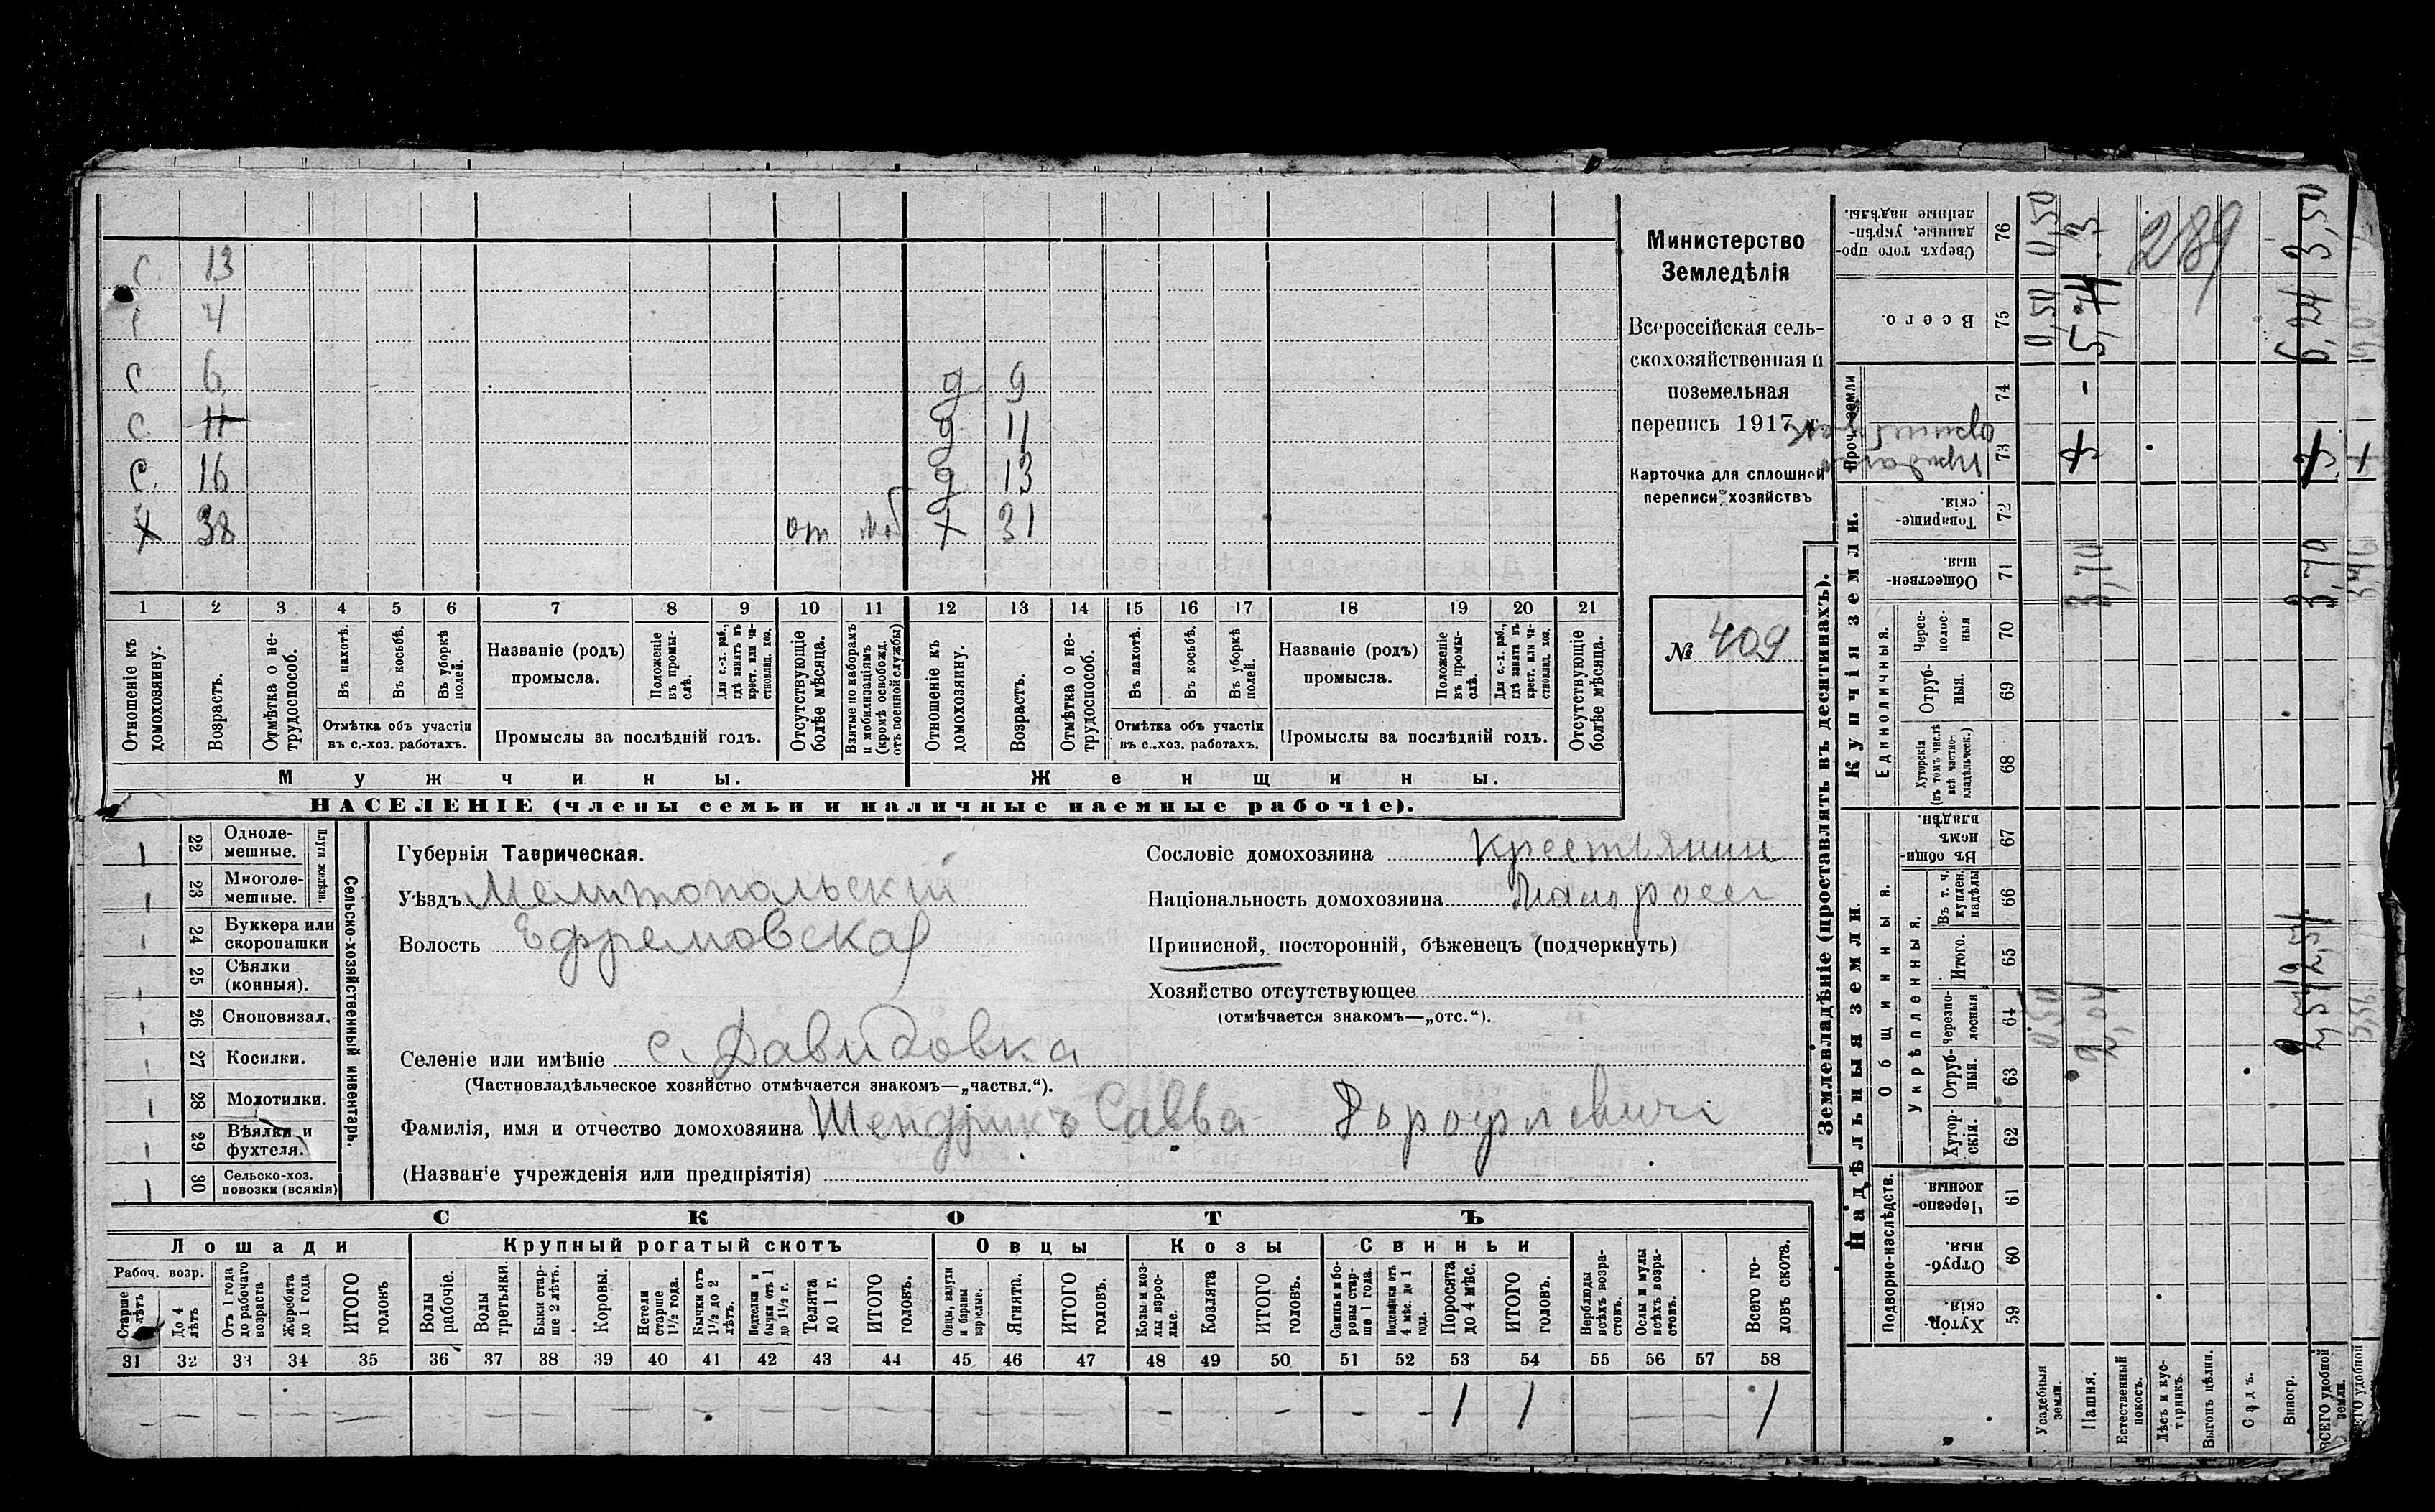 С 13
С 4
С 6 д 9
С 11 д 11
С. 16 д 13
Х 38 от моб Х 31
1 2 3 4 5 6 7 8 9 10 11 12 13 14 15 16 17 18 19 20 21
Отношеніе къ домохозяину.
Возрастъ.
Отмѣтка о нетрудоспособ.
Въ пахотѣ.
Въ косьбѣ.
Въ уборкѣ полей.
Отмѣтка объ участіи въ с.-хоз. работахъ.
Названіе (родъ) промысла.
Положеніе въ промыслѣ.
Для с.-х. раб., гдѣ занятъ въ крест. или частновлад. хоз.
Промыслы за послѣдній годъ.
Отсутствующіе болѣе мѣсяца.
Взятые по наборамъ и мобилизаціямъ (кромѣ освобожд. отъ военной службы)
Отношеніе къ домохозяину.
Возрастъ.
Отмѣтка о нетрудоспособ.
Въ пахотѣ.
Въ косьбѣ.
Въ уборкѣ полей.
Отмѣтка объ участіи въ с.-хоз. работахъ.
Названіе (родъ) промысла.
Положеніе въ промыслѣ.
Для с.-х. раб., гдѣ занята въ крест. или частновлад. хоз.
Промыслы за послѣдній годъ.
Отсутствующіе болѣе мѣсяца.
Мужчины.
Женщины.
НАСЕЛЕНІЕ (члены семьи и наличные наемные рабочіе).
Министерство
Земледѣлія
Всероссійская сель-
скохозяйственная и
поземельная
перепись 1917 г.
Карточка для сплошной
переписи хозяйствъ
№ 409
Сельско-хозяйственный инвентарь.
Плуги желѣзн.
22 Одноле-
мешные.
23 Многоле-
мешные.
24 Буккера или
скоропашки
25 Сѣялки
(конныя).
26 Сноповязал.
27 Косилки.
28 Молотилки.
29 Вѣялки и
фухтеля.
30 Сельско-хоз.
повозки (всякія)
Губернія Таврическая.
Уѣздъ Мелитопольскій
Волость Ефремовская
Селеніе или имѣніе с. Давидовка
(Частновладѣльческое хозяйство отмѣчается знакомъ—„частвл.“).
Фамилія, имя и отчество домохозяина Шендрикъ Савва Дорофѣевичъ
(Названіе учрежденія или предпріятія)
Сословіе домохозяина крестьянин
Національность домохозяина Малоросс
Приписной, посторонній, бѣженецъ (подчеркнуть)
Хозяйство отсутствующее
(отмѣчается знакомъ—„отс.“).
СКОТЪ
Лошади
Крупный рогатый скотъ
Овцы
Козы
Свиньи
Рабоч. возр.
Старше 4 лѣтъ
До 4 лѣтъ
Отъ 1 года до рабочаго возраста
Жеребята до 1 года
ИТОГО головъ
Волы рабочіе.
Волы третьяки.
Быки старше 2 лѣтъ.
Коровы.
Нетели старше 1½ года.
Бычки отъ 1½ до 2 лѣтъ.
Подтелки и бычки отъ 1 до 1½ г.
Телята до 1 г.
ИТОГО головъ.
Овцы, валухи и бараны взрослые.
Ягнята.
ИТОГО головъ.
Козы и козлы взрослые.
Козлята
ИТОГО головъ.
Свиньи и боровы старше 1 года.
Подсвинки отъ 4 мѣс. до 1 года.
Поросята до 4 мѣс.
ИТОГО головъ.
Верблюды всѣхъ возрастовъ.
Ослы и мулы всѣхъ возрастовъ.
Всего головъ скота.
31 32 33 34 35 36 37 38 39 40 41 42 43 44 45 46 47 48 49 50 51 52 53 54 55 56 57 58
1 1 1
Землевладѣніе (проставлять въ десятинахъ).
Надѣльныя земли.
Купчія земли.
Проч. земли
Подворно-наслѣдств.
Общинныя.
Укрѣпленныя.
Единоличныя.
Хуторскія. 59
Отрубныя. 60
Черезполосныя. 61
Хуторскія. 62
Отрубныя. 63
Черезполосныя 64
Итого. 65
Въ т. ч. куплен. надѣлы 66
Въ общинномъ владѣн. 67
Хуторскія (въ томъ числѣ всѣ частновладѣльческ.) 68
Отрубныя. 69
Чересполосныя 70
Общественныя. 71
Товарищескія. 72
73
74
Всего. 75
Сверхъ того проданные, укрѣпленные надѣлы. 76
Усадебныя земли. 0,50 0,50 0,50
Пашня. 2,04 3,70 - 5,74 3
Естественный покосъ.
Лѣсъ и кустарникъ.
Выгонъ цѣлин.
Садъ.
Виногр.
ВСЕГО удобной земли. 2,54 2,54 3,70 6,24 3,50
289